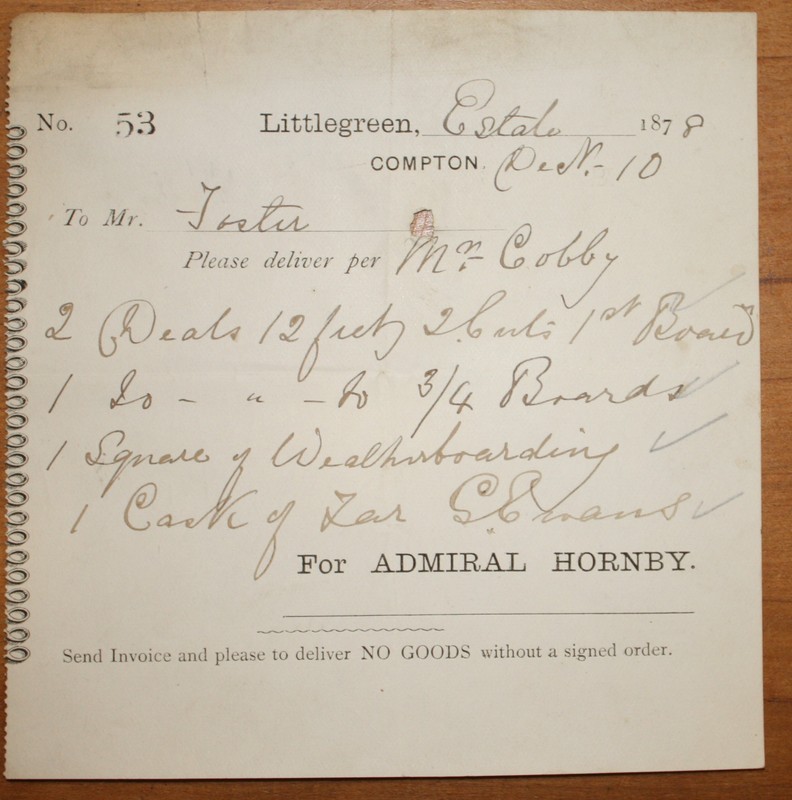 No. 53 Littlegreen, Estate 1878
COMPTON. Dec. 10
To Mr. Foster
Please deliver per Mr. Cobby
2 Deals 12 feet 2 Cuts 1st Board
1 Do - " - to 3/4 Boards
1 Square of Weatherboarding
1 Cask of Tar G. Evans
For ADMIRAL HORNBY.
Send Invoice and please to deliver NO GOODS without a signed order.